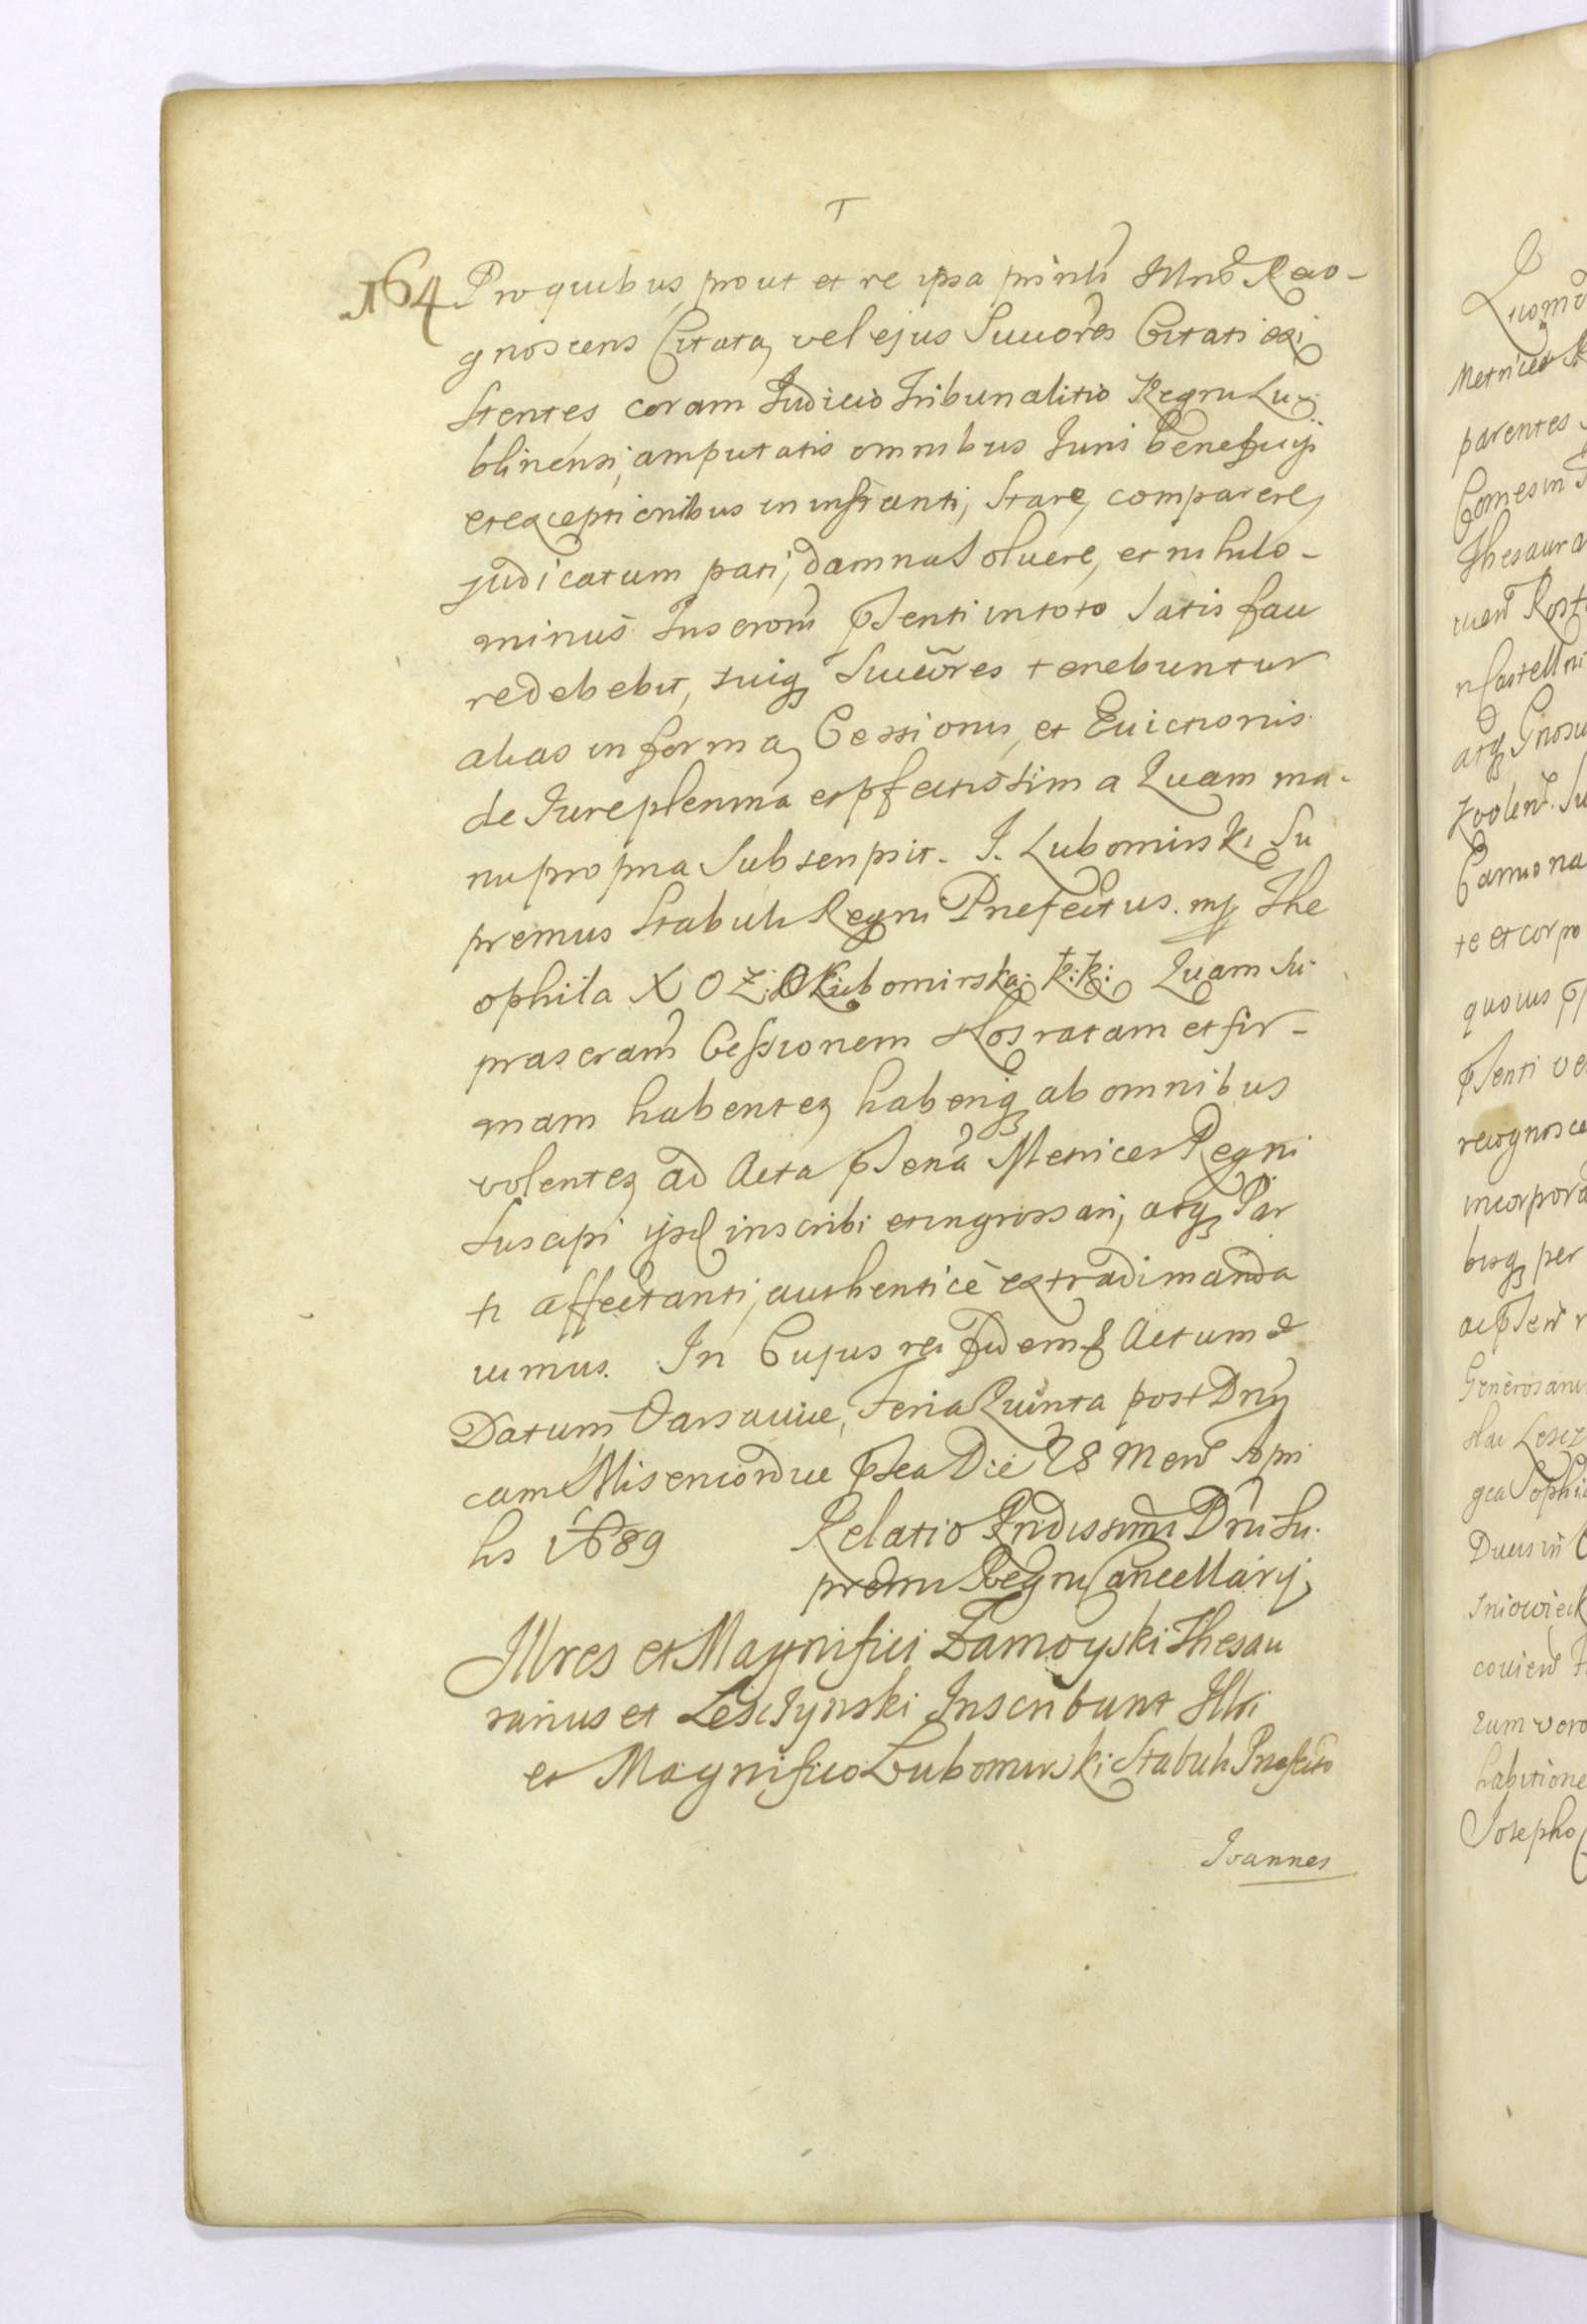 T
164 Pro quibus, prout et re ipsa prinli Mnd Reco-
gnoscens Citata, vel ejus Succores Citati exi
stentes coram Judicio Tribunalitio Regni Lu-
blinensi, amputatis omnibus Juris beneficijs
et exceptionibus in instanti, Stare, comparere,
judicatum pati, damna Soluere, et nihilo-
minus Inscrom pñsenti in toto Satis face
re debebit, suiq Succores tenebuntur
alias in forma Cessionis, et Euictionis
de Jure plenma et pfectissima Quam ma-
nu propria Subscripsit. J. Lubomirski Su
premus Stabuli Regni Prefectus. mp The
ophila X O Z: Lubomirska: K:K: Quam Su
prascram Cessionem Nos ratam et fir-
mam habentes, haberiq ab omnibus
volentes, ad Acta pñsena Metrices Regni
Suscipi ijsq inscribi et ingrossari, atq Par
ti affectanti, authenticè extradi manda
uimus. In Cujus rei fidem & Actum &
Datum Varsauiæ, Feria Quinta post Dnij
cam Misericordiæ pñsea Die 28 Mens Apri
lis 1689
Relatio Prndissimi Dni Su.
premi Regni Cancellarij,
Illres et Magnifici Zamoyski Thesau
rarius et Lesczynski Inscribunt Illri
et Magnifico Lubomirski Stabuli Præfecto
Joannes
Quomo
Metrices
parentes
Comes in
Thesaura
n Castellni
atq Gnosu
te et corpo
quouis
pñsenti ve
recognosce
incorpora
bisq per
Generosam
Sophi
Duus in
Sniowieck
couien
tum vero
habitione
Josepho